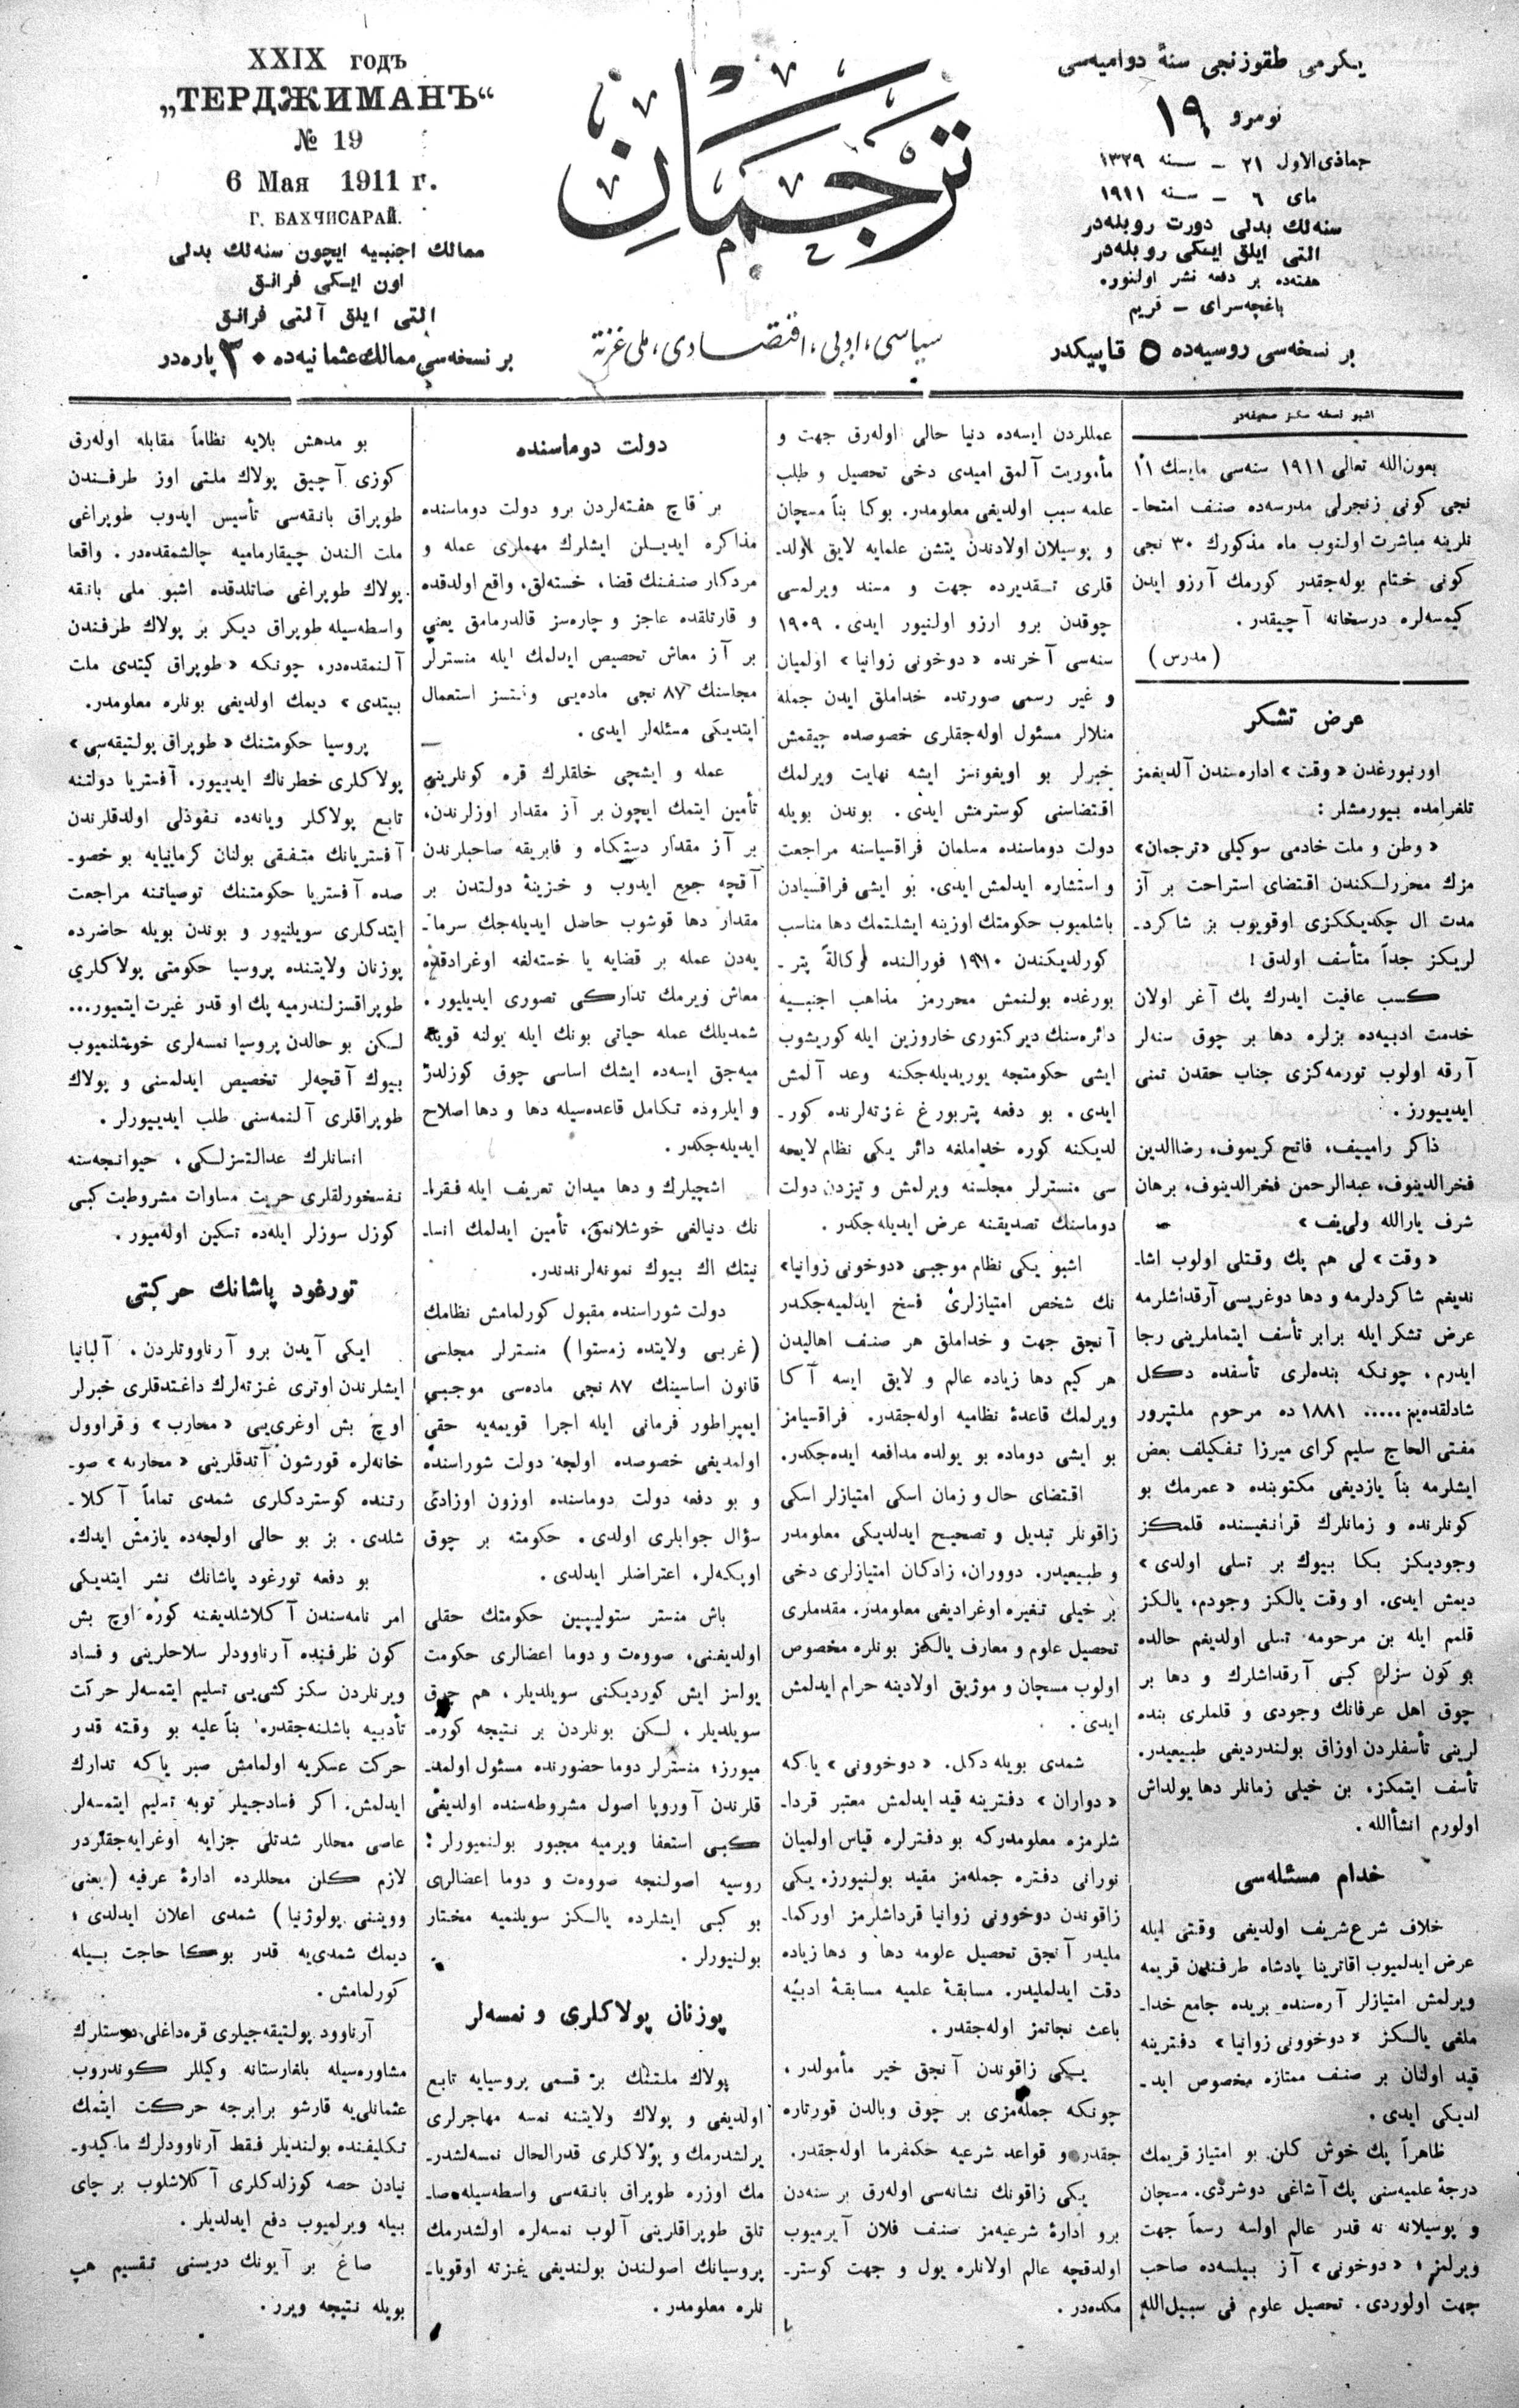 XXIX годъ
„ТЕРДЖИМАНЪ“
№ 19
6 Мая 1911 г.
Г. БАХЧИСАРАЙ.
ممالك اجنبیه ایچون سنه‌لك بدلی
اون ایكی فرانق
التی ایلق آلتی فرانق
بر نسخه‌سی ممالك عثمانیه‌ده ۳۰ پاره‌در
ترجمان
سیاسی، ادبی، اقتصادی، ملی غزته
یكرمی طقوزنجی سنهٔ دوامیه‌سی
نومرو ۱۹
جمادی‌الاول ۲۱ – سنه ۱۳۲۹
مای ۶ – سنه ۱۹۱۱
سنه‌لك بدلی دورت روبله‌در
التی ایلق ایكی روبله‌در
هفته‌ده بر دفعه نشر اولنور.
باغچه‌سرای – قریم
بر نسخه‌سی روسیه‌ده ۵ قاپیكدر
اشبو نسخه سكز صحیفه‌در
بعون‌الله تعالی ۱۹۱۱ سنه‌سی مایسك ۱۱
نجی كونی زنجرلی مدرسه‌ده صنف امتحا-
نلرینه مباشرت اولنوب ماه مذكورك ۳۰ نجی
كونی ختام بوله‌جقدر كورمك آرزو ایدن
كیمسه‌لره درسخانه آچیقدر.
(مدرس)
عرض تشكر
اورنبورغدن «وقت» اداره‌سندن آلدیغمز
تلغرامده بیورمشلر:
«وطن و ملت خادمی سوكیلی «ترجمان»
مزك محررلكندن اقتضای استراحت بر آز
مدت ال چكدیككزی اوقویوب بز شاكرد-
لریكز جداً متأسف اولدق!
كسب عافیت ایدرك پك آغر اولان
خدمت ادبیه‌ده بزلره دها بر چوق سنه‌لر
آرقه اولوب تورمه‌كزی جناب حقدن تمنی
ایدییورز.
ذاكر رامییف، فاتح كریموف، رضاالدین
فخرالدینوف، عبدالرحمن فخرالدینوف، برهان
شرف یارالله ولی‌یف»
«وقت» لی هم پك وقتلی اولوب اشا-
ندیغم شاكردلرمه و دها دوغریسی آرقداشلرمه
عرض تشكر ایله برابر تأسف ایتماملرینی رجا
ایدرم، چونكه بنده‌لری تأسفده دكل
شادلقده‌یم..... ۱۸۸۱ ده مرحوم ملتپرور
مفتی الحاج سلیم كرای میرزا تفكیلف بعض
ایشلرمه بناً یازدیغی مكتوبنده «عمرمك بو
كونلرنده و زمانلرك قرانغیسنده قلمكز
وجودیكز بكا بیوك بر تسلی اولدی»
دیمش ایدی. او وقت یالكز وجودم، یالكز
قلمم ایله بن مرحومه تسلی اولدیغم حالده
بو كون سزلر كبی آرقداشلرك و دها بر
چوق اهل عرفانك وجودی و قلملری بنده
لرینی تأسفلردن اوزاق بولندردیغی طبیعیدر.
تأسف ایتمكز، بن خیلی زمانلر دها یولداش
اولورم انشأالله.
خدام مسئله‌سی
خلاف شرع شریف اولدیغی وقتی ایله
عرض ایدلمیوب اقاترینا پادشاه طرفندن قریمه
ویرلمش امتیازلر آره‌سنده بریده جامع خدا-
ملغی یالكز «دوخوونی زوانیا» دفترینه
قید اولنان بر صنف ممتازه مخصوص اید-
لدیكی ایدی.
ظاهراً پك خوش كلن بو امتیاز قریمك
درجهٔ علمیه‌سنی پك آشاغی دوشردی. مسچان
و پوسیلانه نه قدر عالم اولسه رسماً جهت
ویرلمز؛ «دوخونی» آز بیلسه‌ده صاحب
جهت اولوردی. تحصیل علوم فی سبیل‌الله
عمللردن ایسه‌ده دنیا حالی اوله‌رق جهت و
مأموریت آلمق امیدی دخی تحصیل و طلب
علمه سبب اولدیغی معلومدر. بوكا بناً مسچان
و پوسیلان اولادندن یتشن علمایه لایق اولد-
قلری تقدیرده جهت و مسند ویرلمسی
چوقدن برو ارزو اولنیور ایدی. ۱۹۰۹
سنه‌سی آخرنده «دوخونی زوانیا» اولمیان
و غیر رسمی صورتده خداملق ایدن جمله
منلالر مسئول اوله‌جقلری خصوصده چیقمش
خبرلر بو اویغونسز ایشه نهایت ویرلمك
اقتضاسنی كوسترمش ایدی. بوندن بویله
دولت دوماسنده مسلمان فراقسیاسنه مراجعت
و استشاره ایدلمش ایدی. بو ایشی فراقسیادن
باشلمیوب حكومتك اوزینه ایشلتمك دها مناسب
كورلدیكندن ۱۹۱۰ فورالنده وكالةً پتر-
بورغده بولنمش محررمز مذاهب اجنبیه
دائره‌سنك دیركتوری خاروزین ایله كوریشوب
ایشی حكومتجه یوریدیله‌جكنه وعد آلمش
ایدی. بو دفعه پتربورغ غزته‌لرنده كور-
لدیكنه كوره خداملغه دائر یكی نظام لایحه
سی منسترلر مجلسنه ویرلمش و تیزدن دولت
دوماسنك تصدیقنه عرض ایدیله‌جكدر.
اشبو یكی نظام موجبی «دوخونی زوانیا»
نك شخص امتیازلری فسخ ایدلمیه‌جكدر
آنجق جهت و خداملق هر صنف اهالیدن
هر كیم دها زیاده عالم و لایق ایسه آكا
ویرلمك قاعدهٔ نظامیه اوله‌جقدر. فراقسیامز
بو ایشی دوماده بو یولده مدافعه ایده‌جكدر.
اقتضای حال و زمان اسكی امتیازلر اسكی
زاقونلر تبدیل و تصحیح ایدلدیكی معلومدر
و طبیعیدر. دووران، زادكان امتیازلری دخی
بر خیلی تغیره اوغرادیغی معلومدر. مقدملری
تحصیل علوم و معارف یالكز بونلره مخصوص
اولوب مسچان و موژیق اولادینه حرام ایدلمش
ایدی.
شمدی بویله دكل. «دوخوونی» یاكه
«دواران» دفترینه قید ایدلمش معتبر قردا-
شلرمزه معلومدركه بو دفترلره قیاس اولمیان
نورانی دفتره جمله‌مز مقید بولنیورزه یكی
زاقوندن دوخوونی زوانیا قرداشلرمز اوركما-
ملیدر آنجق تحصیل علومه دها و دها زیاده
دقت ایدلملیدر. مسابقهٔ علمیه مسابقهٔ ادبیه
باعث نجاتمز اوله‌جقدر.
یكی زاقوندن آنجق خیر مأمولدر،
چونكه جمله‌مزی بر چوق وبالدن قورتاره
جقدر و قواعد شرعیه حكمفرما اوله‌جقدر.
یكی زاقونك نشانه‌سی اوله‌رق بر سنه‌دن
برو ادارهٔ شرعیه‌مز صنف فلان آیرمیوب
اولدقچه عالم اولانلره یول و جهت كوستر-
مكده‌در.
دولت دوماسنده
بر قاچ هفته‌لردن برو دولت دوماسنده
مذاكره ایدیلن ایشلرك مهملری عمله و
مردكار صنفنك قضا، خسته‌لق، واقع اولدقده
و قارتلقده عاجز و چاره‌سز قالدرمامق یعنی
بر آز معاش تحصیص ایدلمك ایله منسترلر
مجلسنك ۸۷ نجی ماده‌یی وقتسز استعمال
ایتدیكی مسئله‌لر ایدی.
عمله و ایشچی خلقلرك قره كونلرینی
تأمین ایتمك ایچون بر آز مقدار اوزلرندن،
بر آز مقدار دستكاه و فابریقه صاحبلرندن
آقچه جمع ایدوب و خزینهٔ دولتدن بر
مقدار دها قوشوب حاضل ایدیله‌جك سرما-
یه‌دن عمله بر قضایه یا خسته‌لغه اوغرادقده
معاش ویرمك تداركی تصوری ایدیلیور.
شمدیلك عمله حیاتی بونك ایله یولنه قویله
میه‌جق ایسه‌ده ایشك اساسی چوق كوزلدر
و ایلروده تكامل قاعده‌سیله دها و دها اصلاح
ایدیله‌جكدر.
اشچیلرك و دها میدان تعریف ایله فقرا-
نك دنیالغی خوشلانمق، تأمین ایدلمك انسا-
نیتك اك بیوك نمونه‌لرندندر.
دولت شوراسنده مقبول كورلمامش نظامك
(غربی ولایتده زمستوا) منسترلر مجلسی
قانون اساسینك ۸۷ نجی ماده‌سی موجبی
ایمپراطور فرمانی ایله اجرا قویمه‌یه حقی
اولمدیغی خصوصده اولجه دولت شوراسنده
و بو دفعه دولت دوماسنده اوزون اوزادی
سؤال جوابلری اولدی. حكومته بر چوق
اوپكه‌لر، اعتراضلر ایدلدی.
باش منستر ستولیپین حكومتك حقلی
اولدیغنی، صووه‌ت و دوما اعضالری حكومت
یولسز ایش كوردیكنی سویلدیلر، هم چوق
سویلدیلر، لكن بونلردن بر نتیجه كوره-
میورز؛ منسترلر دوما حضورنده مسئول اولمد-
قلرندن آوروپا اصول مشروطه‌سنده اولدیغی
كبی استعفا ویرمیه مجبور بولنمیورلر:
روسیه اصولنجه صووه‌ت و دوما اعضالری
بو كبی ایشلرده یالكز سویلنمیه مختار
بولنیورلر.
پوزنان پولاكلری و نمسه‌لر
پولاك ملتنك بر قسمی بروسیایه تابع
اولدیغی و پولاك ولایتنه نمسه مهاجرلری
یرلشدرمك و پولاكلری قدرالحال نمسه‌لشدر-
مك اوزره طوپراق بانقه‌سی واسطه‌سیله صا-
تلق طوپراقلرینی آلوب نمسه‌لره اولشدرمك
پروسیانك اصولندن بولندیغی غزته اوقویا-
نلره معلومدر.
بو مدهش بلایه نظاماً مقابله اوله‌رق
كوزی آچیق پولاك ملتی اوز طرفندن
طوپراق بانقه‌سی تأسیس ایدوب طوپراغی
ملت الندن چیقارمامیه چالشمقده‌در. واقعا
پولاك طوپراغی صاتلدقده اشبو ملی بانقه
واسطه‌سیله طوپراق دیكر بر پولاك طرفندن
آلنمقده‌در، چونكه «طوپراق كیتدی ملت
بیتدی» دیمك اولدیغی بونلره معلومدر.
پروسیا حكومتنك «طوپراق پولتیقه‌سی»
پولاكلری خطرناك ایدییور. آفستریا دولتنه
تابع پولاكلر ویانه‌ده نفوذلی اولدقلرندن
آفستریانك متفقی بولنان كرمانیایه بو خصو-
صده آفستریا حكومتنك توصیاتنه مراجعت
ایتدكلری سویلنیور و بوندن بویله حاضرده
پوزنان ولایتنده پروسیا حكومتی پولاكلری
طوپراقسزلندرمیه پك او قدر غیرت ایتمیور...
لكن بو حالدن پروسیا نمسه‌لری خوشلنمیوب
بیوك آقچه‌لر تخصیص ایدلمسنی و پولاك
طوپراقلری آلنمه‌سنی طلب ایدییورلر.
انسانلرك عدالتسزلكی، حیوانجه‌سنه
نفسخورلقلری حریت مساوات مشروطیت كبی
كوزل سوزلر ایله‌ده تسكین اوله‌میور.
تورغود پاشانك حركتی
ایكی آیدن برو آرناووتلردن، آلبانیا
ایشلرندن اوتری غزته‌لرك داغتدقلری خبرلر
اوچ بش اوغری‌یی «محارب» و قراوول
خانه‌لره قورشون آتدقلرینی «محاربه» صو-
رتنده كوستردكلری شمدی تماماً آكلا-
شلدی. بز بو حالی اولجه‌ده یازمش ایدك.
بو دفعه تورغود پاشانك نشر ایتدیكی
امر نامه‌سندن آكلاشلدیغنه كوره اوچ بش
كون ظرفنده آرناوودلر سلاحلرینی و فساد
ویرنلردن سكز كشی‌یی تسلیم ایتمسه‌لر حركت
تأدبیه باشلنه‌جقدر. بناً علیه بو وقته قدر
حركت عسكریه اولمامش صبر یاكه تدارك
ایدلمش. اكر فسادجیلر توبه تسلیم ایتمسه‌لر
عاصی محللر شدتلی جزایه اوغرایه‌جقلردر
لازم كلن محللرده ادارهٔ عرفیه (یعنی
ووینی پولوژنیا) شمدی اعلان ایدلدی؛
دیمك شمدی‌یه قدر بوكا حاجت بیله
كورلمامش.
آرناوود پولتیقه‌جیلری قره‌داغلی دوستلرك
مشاوره‌سیله بلغارستانه وكیللر كوندروب
عثمانلی‌یه قارشو برابرجه حركت ایتمك
تكلیفنده بولندیلر فقط آرناوودلرك ماكیدو-
نیادن حصه كوزلدكلری آكلاشلوب بر چای
بیله ویرلمیوب دفع ایدلدیلر.
صاغ بر آیونك دریسنی تقسیم هپ
بویله نتیجه ویرر.